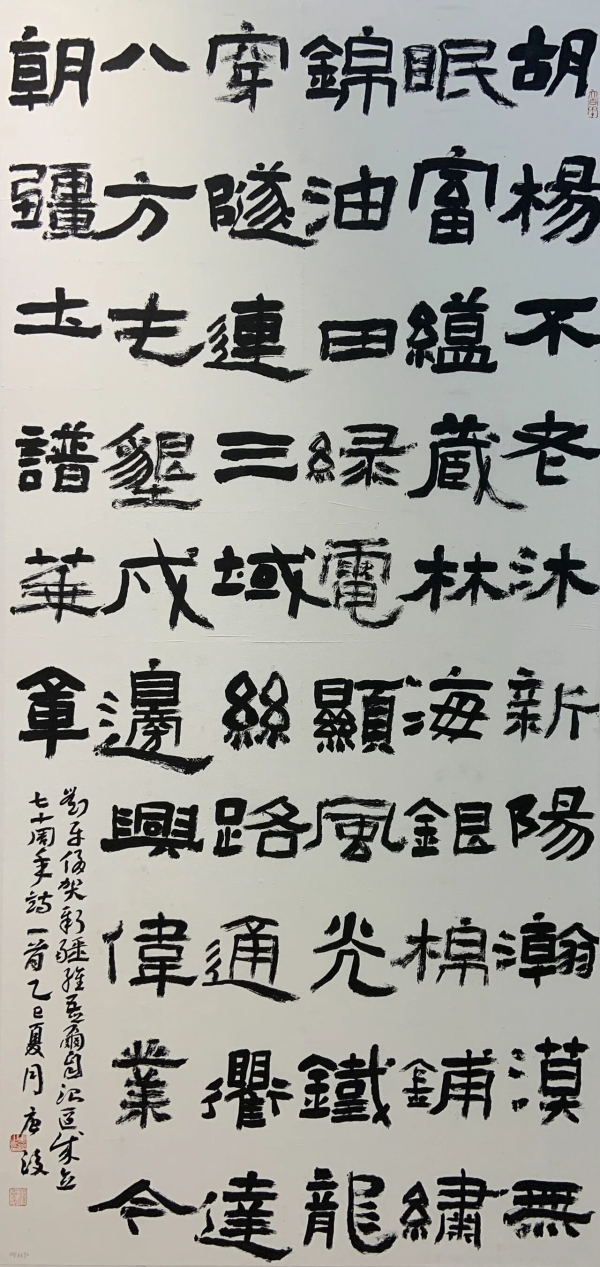 胡楊不老沐新陽瀚漠無
眠富緼藏林海銀棉鋪繡
錦油田緑電顯風光鐵龍
穿隧連三域絲路通衢達
八方屯墾戍邊興偉業今
朝疆土譜華章
劉平賀新疆維吾爾自治區成立
七十周年詩一首乙巳夏月